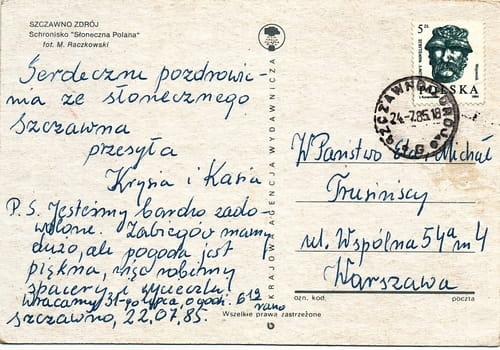 SZCZAWNO ZDRÓJ
Schronisko "Słoneczna Polana"
fot. M. Raczkowski
Serdeczne pozdrowie-
nia ze słonecznego
Szczawna
przesyła
Krysia i Kasia
P.S. Jesteśmy bardzo zado-
wolone. Zabiegów mamy
dużo, ale pogoda jest
piękna, więc robimy
spacery i wycieczki.
Wracamy 31-go lipca, o godz. 6 19
rano
Szczawno, 22.07.85.
KRAJOWA AGENCJA WYDAWNICZA
5 zł
POLSKA
SZCZAWNO ZDRÓJ
24-7.85.18
W Państwo Michał
Trusińscy
ul. Wspólna 54a m 4
Warszawa
ozn. kod.
poczta
Wszelkie prawa zastrzeżone